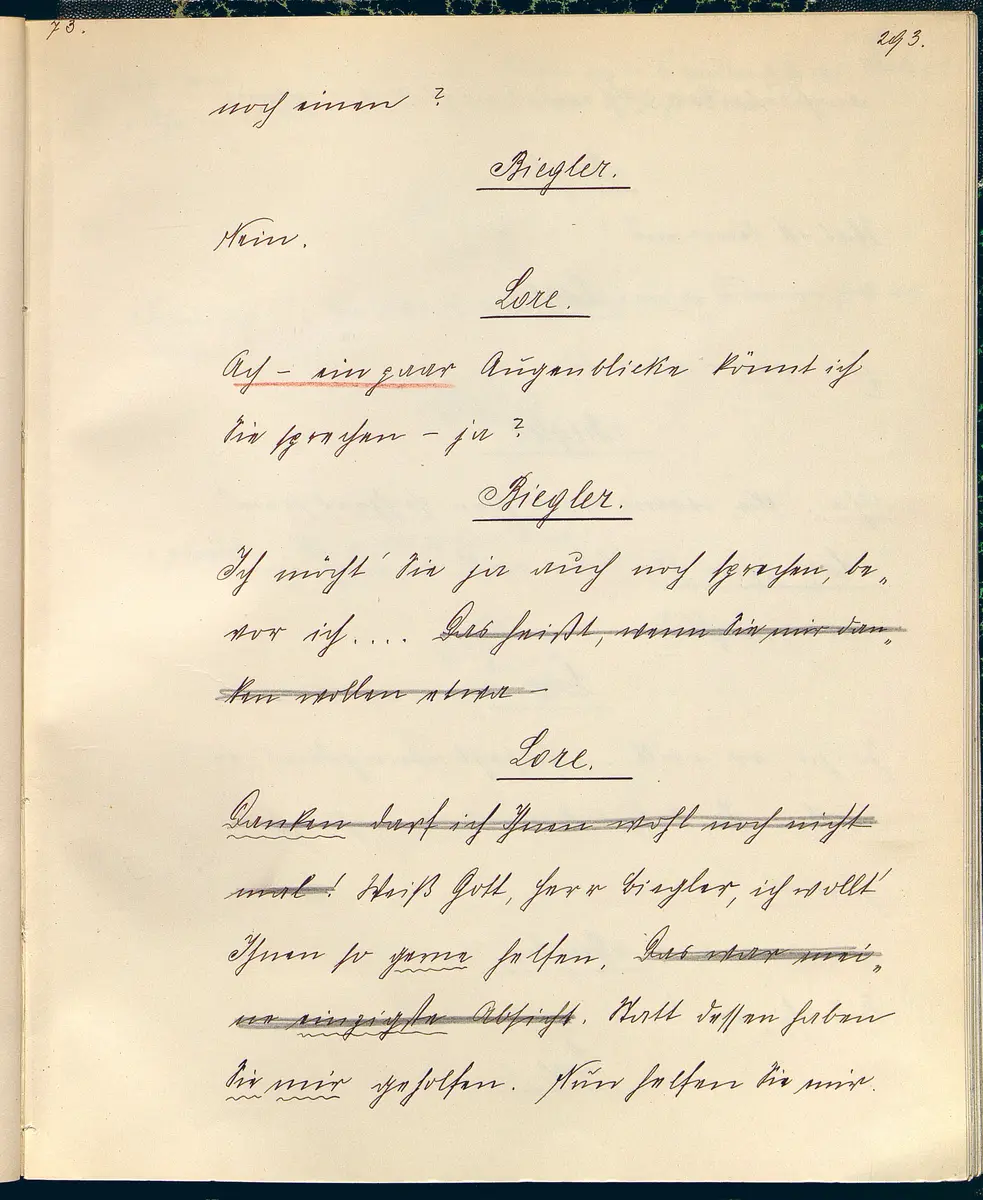 73.
293.
noch einen ?
Biegler.
Nein.
Lore.
Ach – ein paar Augenblicke könnt ich
Sie sprechen – ja ?
Biegler.
Ich möcht' Sie ja auch noch sprechen, be„
vor ich.... Das heißt, wenn Sie mir dan„
ken wollen etwa –
Lore.
Danken darf ich Ihnen wohl noch nicht
mal! Weiß Gott, Herr Biegler, ich wollt'
Ihnen so gerne helfen. Das war mei„
ne einzigste Absicht. Statt dessen haben
Sie mir geholfen. Nun helfen Sie mir.